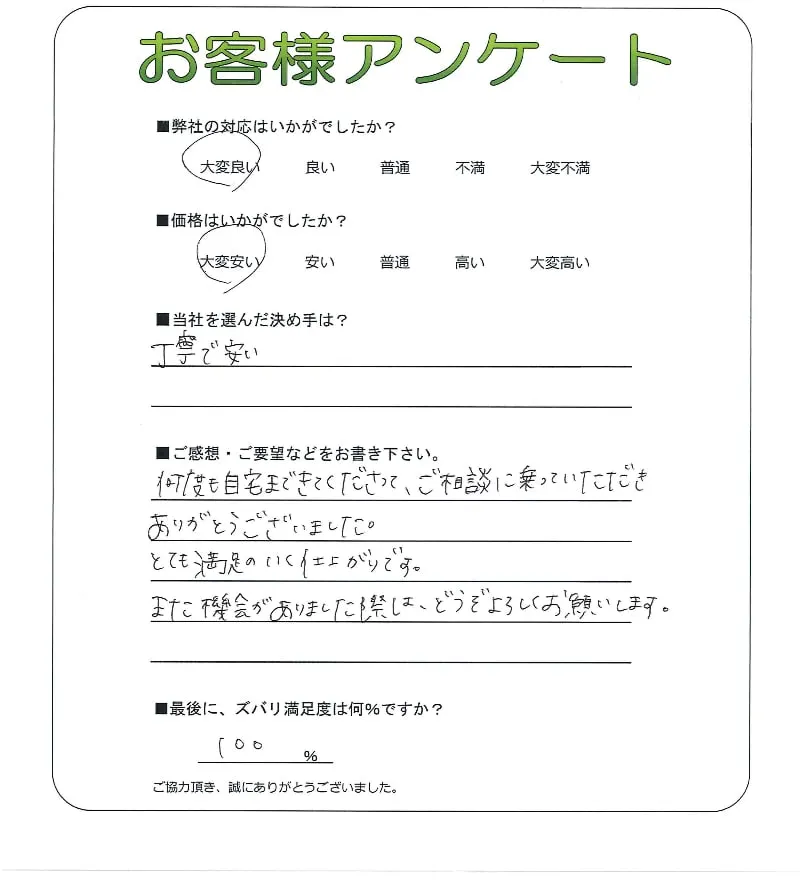 お客様アンケート
■弊社の対応はいかがでしたか？
大変良い 良い 普通 不満 大変不満
■価格はいかがでしたか？
大変安い 安い 普通 高い 大変高い
■当社を選んだ決め手は？
丁寧で安い
■ご感想・ご要望などをお書き下さい。
何度も自宅まできてくださって、ご相談に乗っていただき
ありがとうございました。
とても満足のいく仕上がりです。
また機会がありました際は、どうぞよろしくお願いします。
■最後に、ズバリ満足度は何％ですか？
100 %
ご協力頂き、誠にありがとうございました。